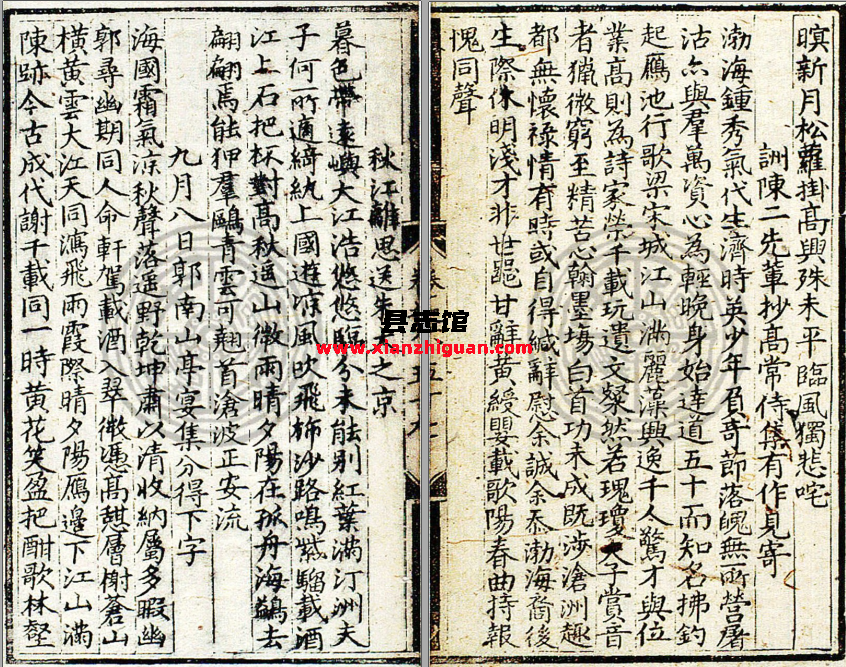 暝新月松蘿掛高興殊未平臨風獨悲咤
詶陳二先輩抄高常侍集有作見寄
渤海鍾秀氣代生濟時英少年負奇節落魄無所營屠
沽亦與羣萬資心為輕晚身始達道五十而知名拂釣
起鴈池行歌梁宋城江山滿麗藻興逸千人驚才與位
業高則為詩家榮千載玩遺文燦然若瑰瓊夫子賞音
者獵微窮至精苦心翰墨塲白首功未成既涉滄洲趣
都無懷祿情有時或自得緘辭慰余誠余忝渤海裔後
生際休明淺才非世謳甘辭黃綬嬰載歌陽春曲持報
愧同聲
卷五十九
县志馆
www.xianzhiguan.com
秋江離思送朱之京
暮色帶遠嶼大江浩悠悠臨分未能別紅葉滿汀洲夫
子何所適縞紵上國遊凉風吹飛柿沙路鳴紫騮載酒
江上石把杯對高秋遥山微雨晴夕陽在孤舟海鶴去
翩翩焉能狎羣鷗青雲可翹首滄波正安流
九月八日郭南山亭宴集分得下字
海國霜氣凉秋聲落遥野乾坤肅以清收納屬多暇幽
郭尋幽期同人命軒駕載酒入翠微憑高憇層榭蒼山
橫黃雲大江天同瀉飛雨霞際晴夕陽鴈邊下江山滿
陳跡今古成代謝千載同一時黃花笑盈把酣歌林壑